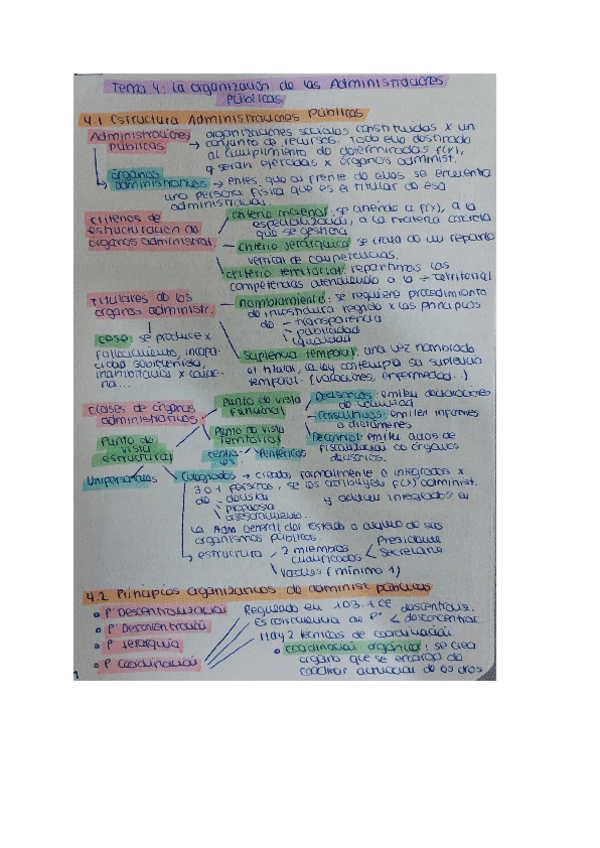 Tema 4: La organización de las Administraciones
Públicas
4.1 Estructura Administraciones Públicas
Administraciones públicas → organizaciones sociales constituidas x un
conjunto de recursos. Todo ello destinado
al cumplimiento de determinadas f(x),
q serán ejercidas x órganos administ.
órganos administrativos → entes, que al frente de ellos se encuentra
una persona física que es el titular de esa
administración
Criterios de
estructuración de
órganos administrat.
criterio material: se atiende a f(x), a la
especialización, a la materia concreta
que se gestiona
criterio jerárquico: se trata de un reparto
vertical de competencias.
criterio territorial: repartimos las
competencias atendiendo a la territorial
Titulares de los
órganos administr.
nombramiento: se requiere procedimiento
de investidura regido x los principios
de - transparencia
- publicidad
- igualdad
cese: se produce x
fallecimiento, incapa-
cidad sobrevenida,
inhabilitación x conde-
na...
suplencia temporal: una vez nombrado
el titular, la ley contempla su suplencia
temporal. (vacaciones, enfermedad..)
clases de órganos
administrativos
Punto de vista
funcional
Decisorios: emiten declaraciones
de voluntad
Consultivos: emiten informes
o dictámenes
De control: emite actos de
fiscalización a órganos
decisorios.
Punto de vista
territorial
centra-
les
Periféricos
Punto de
vista
estructural
Unipersonales
Colegiados → creados formalmente e integrados x
3 o + personas, se les atribuyen f(x) administ.
de - decisión
- propuesta
- asesoramiento.
y actúan integrados en
la Adm General del estado o alguno de sus
organismos públicos.
estructura
2 miembros
cualificados
Presidente
Secretario
Vocales (mínimo 1)
4.2 Principios organizativos de administ públicas
• P' Descentralización
• P' Desconcentración
• P' Jerarquía
• P' Coordinación
Regulado en 103.1 CE
Es consecuencia de P'
descentraliz.
desconcentrac.
Hay 2 técnicas de coordinación
• coordinación orgánica: se crea
órgano que se encarga de
coordinar actuación de los otros